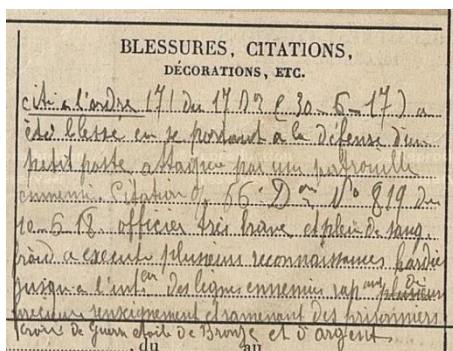 BLESSURES, CITATIONS,
DÉCORATIONS, ETC.
cité a l'ordre 171 du 17 Don (30-6-17) a
été blessé en se portant à la défense d'un
petit poste attaqué par une patrouille
ennemie. Citation 66e Don No 819 du
10-6-18 officier très brave et plein de sang
froid a executé plusieurs reconnaissances hardies
jusqu'a l'intéeur des lignes ennemies rapant plusieurs
precieux renseignement et ramenant des prisonniers
croix de Guerre étoile de Bronze et d'argent
du au